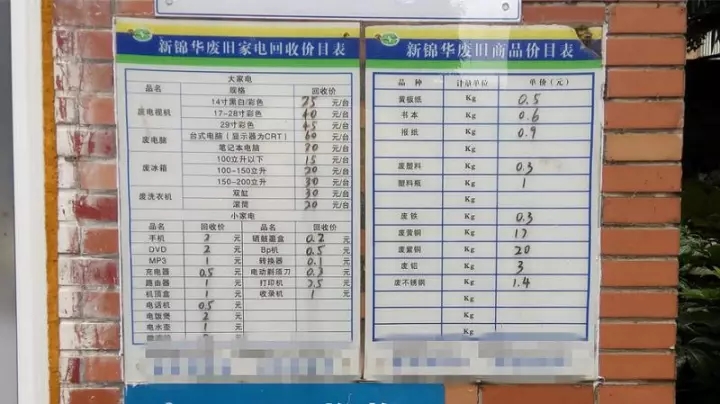 新锦华废旧家电回收价目表
大家电
品名 规格 回收价
废电视机 14寸黑白/彩色 25 元/台
17-28寸彩色 40 元/台
29寸彩色 45 元/台
废电脑 台式电脑（显示器为CRT） 60 元/台
笔记本电脑 30 元/台
废冰箱 100立升以下 15 元/台
100-150立升 20 元/台
150-200立升 30 元/台
废洗衣机 双缸 30 元/台
滚筒 20 元/台
小家电
品名 回收价 品名 回收价
手机 2 元 硒鼓墨盒 0.2 元
DVD 2 元 Bp机 0.5 元
MP3 1 元 转换器 0.1 元
充电器 0.5 元 电动剃须刀 0.3 元
路由器 1 元 打印机 7.5 元
机顶盒 1 元 收录机 1 元
电话机 0.5 元
电饭煲 2 元
电水壶 1 元
新锦华废旧商品价目表
品 种 计量单位 单价（元）
黄板纸 Kg 0.5
书本 Kg 0.6
报纸 Kg 0.9
Kg
废塑料 Kg 0.3
塑料瓶 Kg 1
Kg
废铁 Kg 0.3
废黄铜 Kg 17
废紫铜 Kg 20
废铝 Kg 3
废不锈钢 Kg 1.4
Kg
Kg
Kg